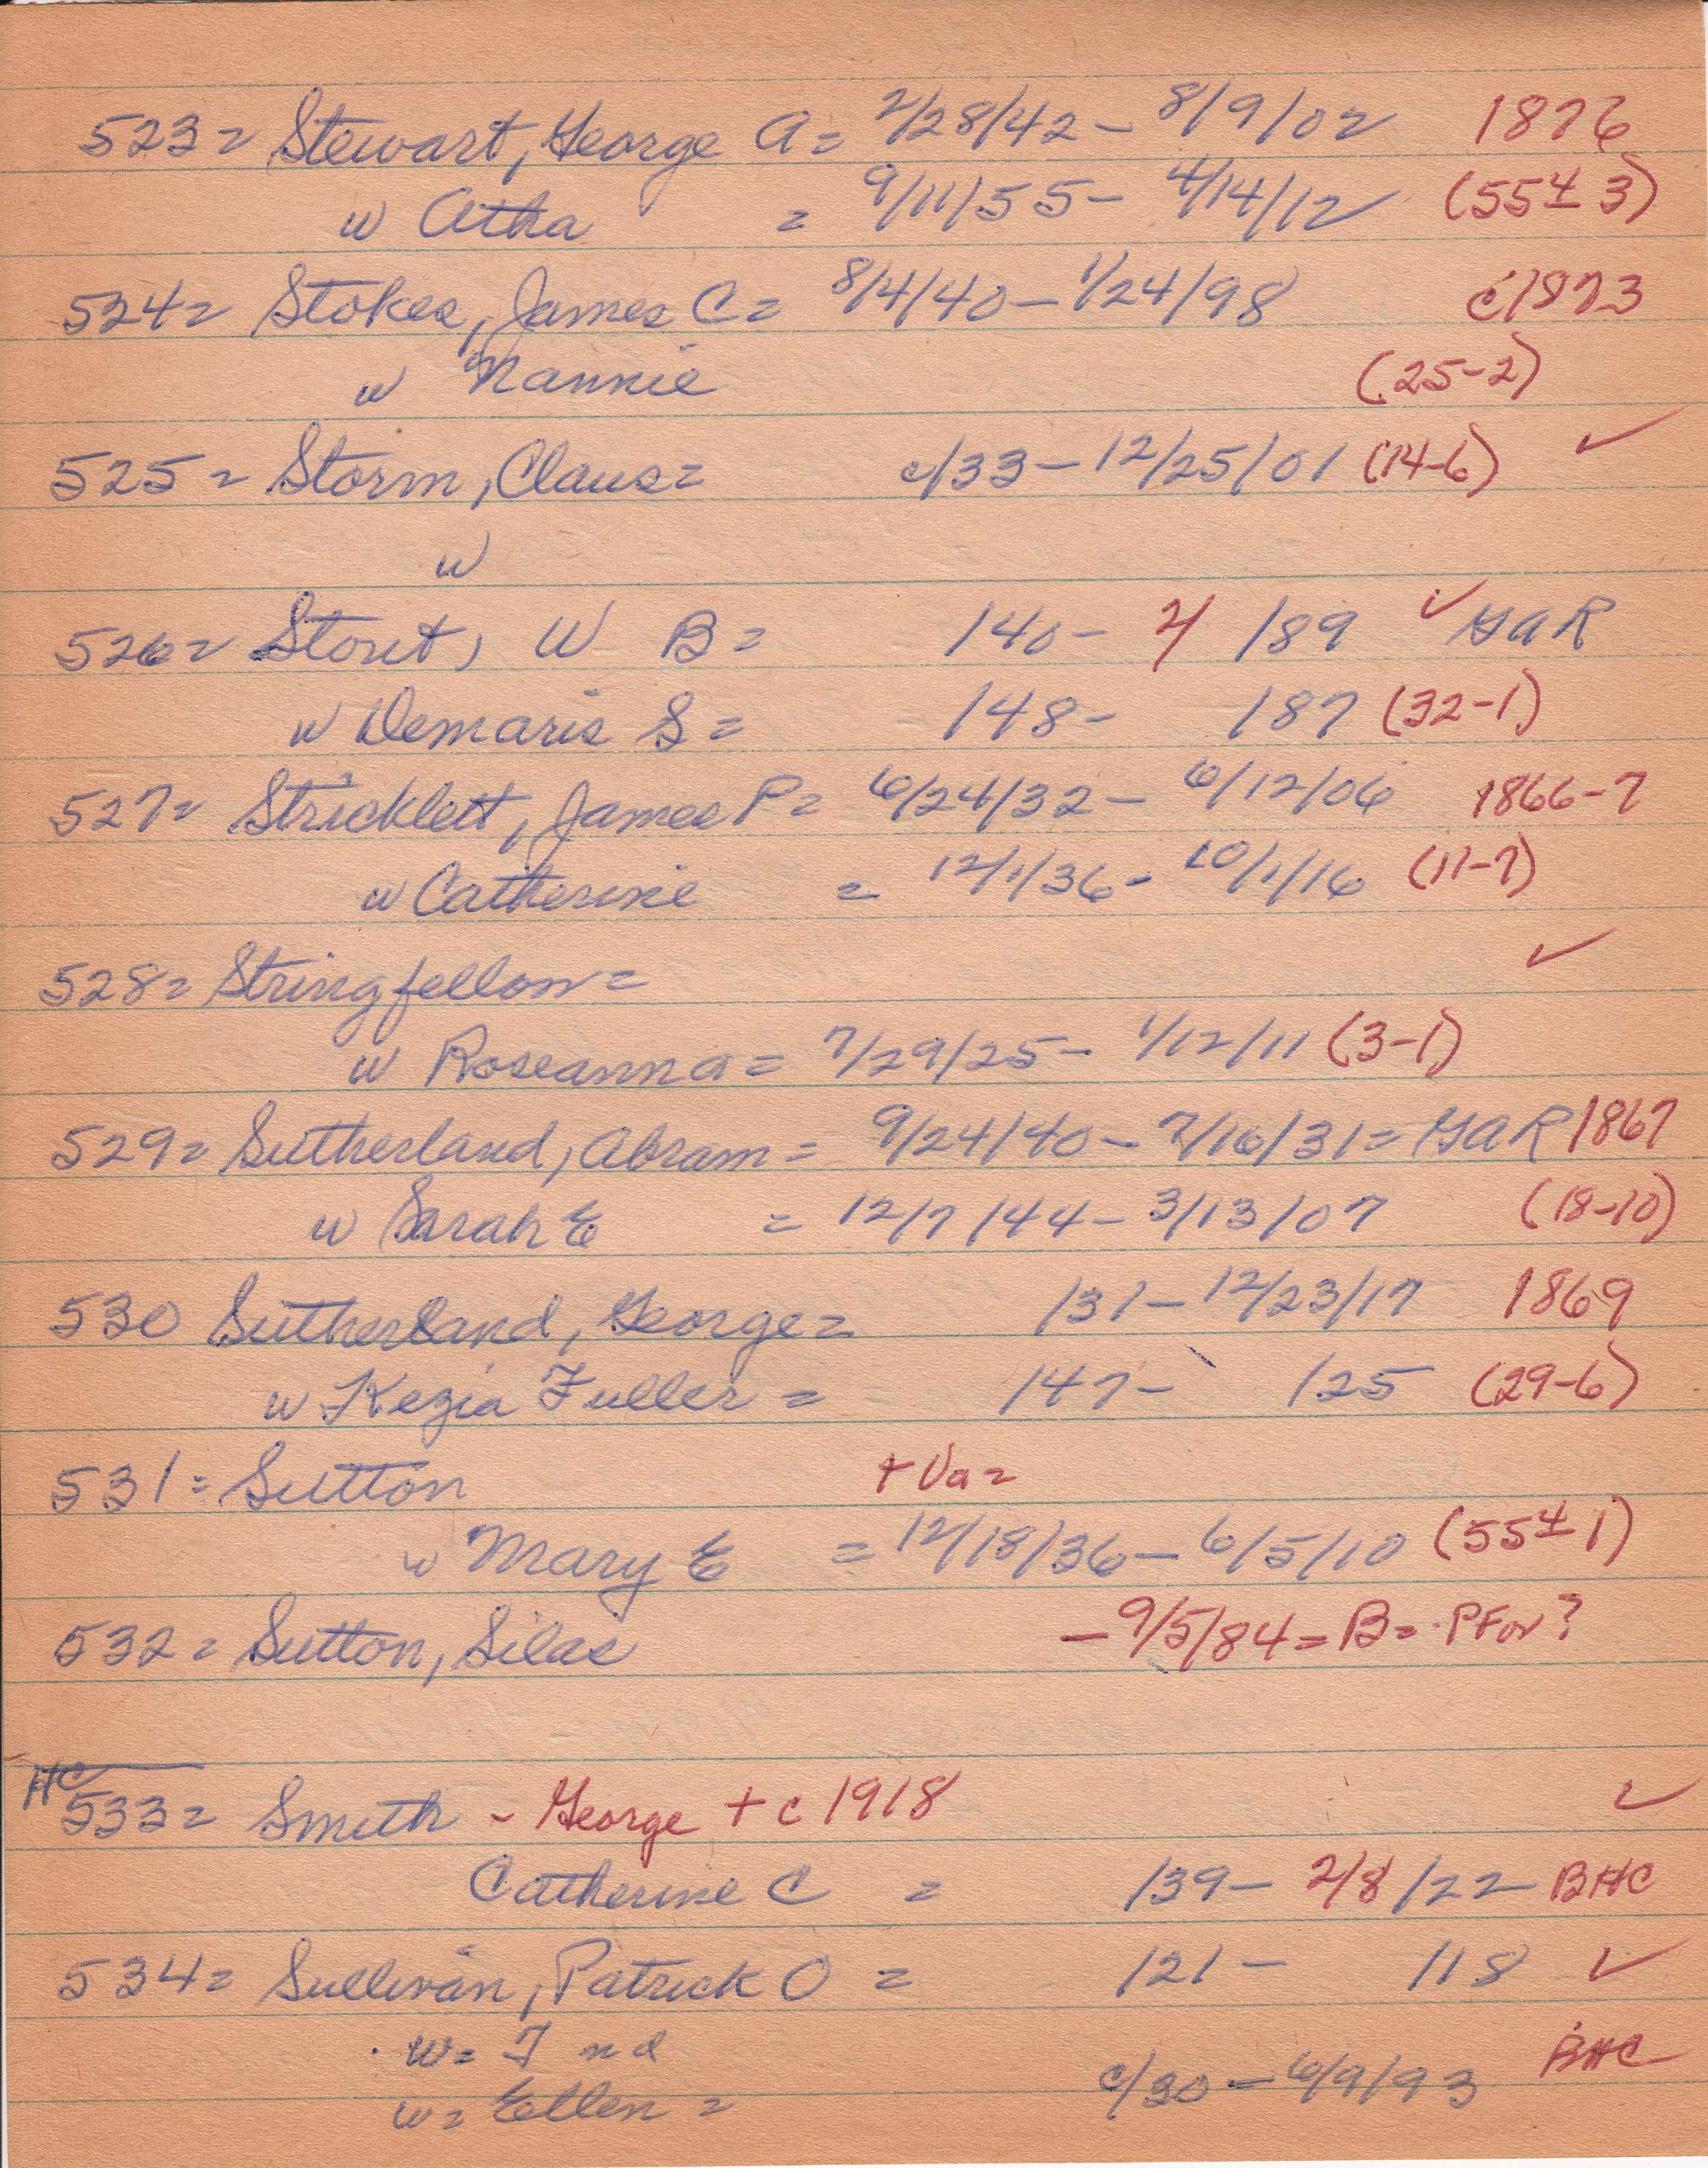 523= Stewart, George A= 2/28/42 - 8/9/02 1876
w Atha = 9/11/55 - 4/14/12 (55± 3)
524= Stokes, James C= 8/4/40 - 1/24/98 c1873
w Nannie (25-2)
525= Storm, Claus= c/33 - 12/25/01 (14-6) ✓
w
526= Stout, W B= /40 - 2/ /89 ✓ GAR
w Demaris S= /48 - /87 (32-1)
527= Stricklett, James P= 6/24/32 - 6/12/06 1866-7
w Catherine = 12/1/36 - 10/1/16 (11-7)
528= Stringfellow= ✓
w Roseanna= 7/29/25 - 1/12/11 (3-1)
529= Sutherland, Abram= 9/24/40 - 7/16/31= GAR 1867
w Sarah E = 12/7/44 - 3/13/07 (18-10)
530 Sutherland, George= /31 - 12/23/17 1869
w Kezia Fuller= /47 - /25 (29-6)
531= Sutton + Va=
w Mary E = 12/18/36 - 6/5/10 (55± 1)
532= Sutton, Silas - 9/5/84= B= PFor?
HC
533= Smith - George + c 1918 ✓
Catherine C = /39 - 2/8/22 - BHC
534= Sullivan, Patrick O = /21 - /18 ✓
w= I nd BHC
w= Ellen = c/30 - 6/9/93